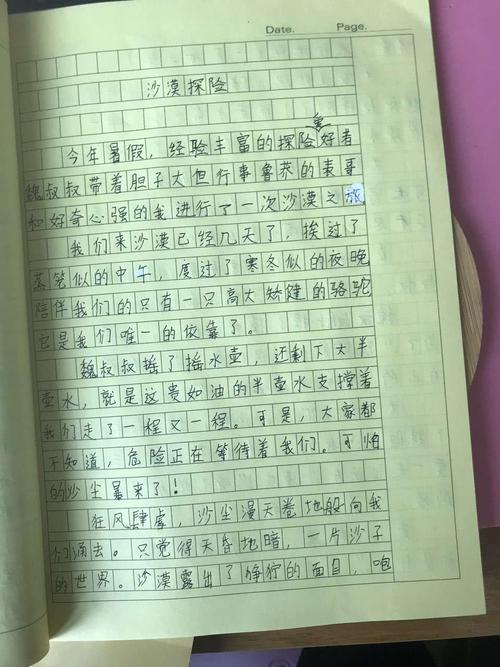 Date.  Page.
沙漠探险
今年暑假，经验丰富的探险爱好者
魏叔叔带着胆子大但行事鲁莽的表哥
和好奇心强的我进行了一次沙漠之旅
我们来沙漠已经几天了，挨过了
蒸笼似的中午，度过了寒冬似的夜晚
陪伴我们的只有一只高大矫健的骆驼
它是我们唯一的依靠了。
魏叔叔摇了摇水壶，还剩下大半
壶水，就是这贵如油的半壶水支撑着
我们走了一程又一程。可是，大家都
不知道，危险正在等待着我们。可怕
的沙尘暴来了！
狂风肆虐，沙尘漫天卷地般向我
们涌去。只觉得天昏地暗，一片沙子
的世界。沙漠露出了狰狞的面目，咆